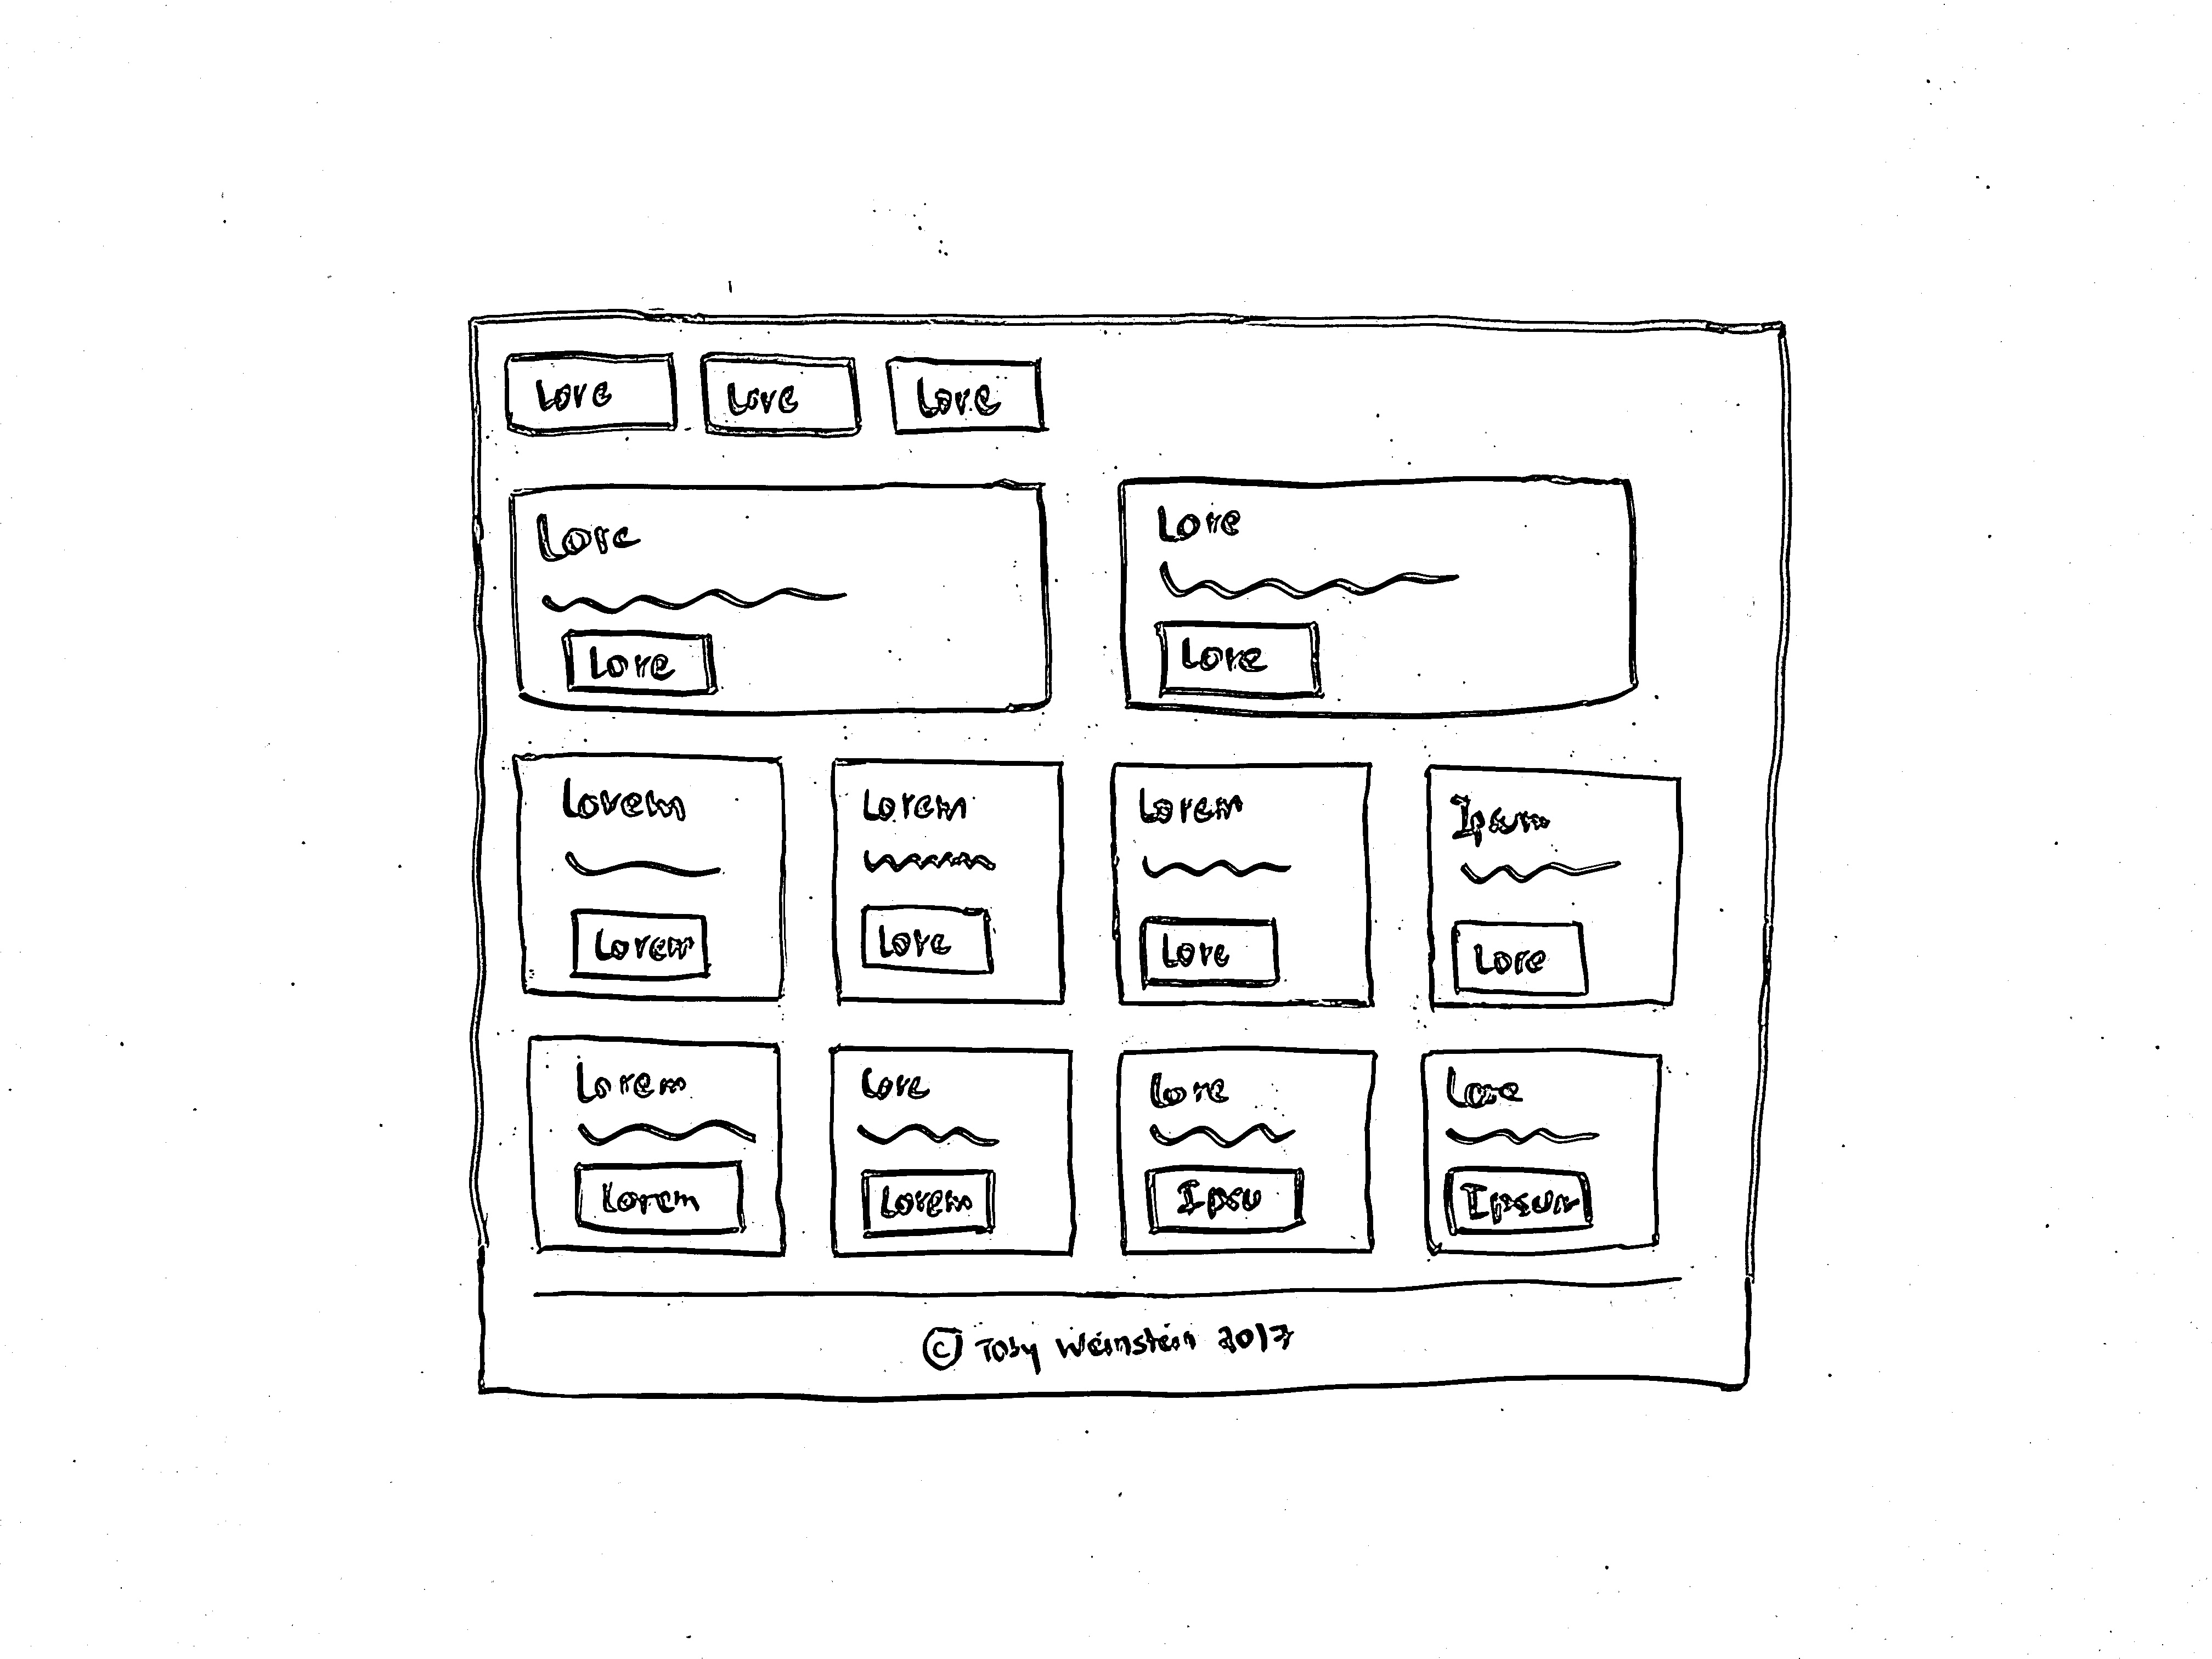 Lore Lore Lore
Lore Lore
Lore Lore
Lorem Lorem Lorem Ipsum
Lorem Lore Lore Lore
Lorem Lore Lore Lore
Lorem Lorem Ipsu Ipsum
© Toby Weinstein 2017